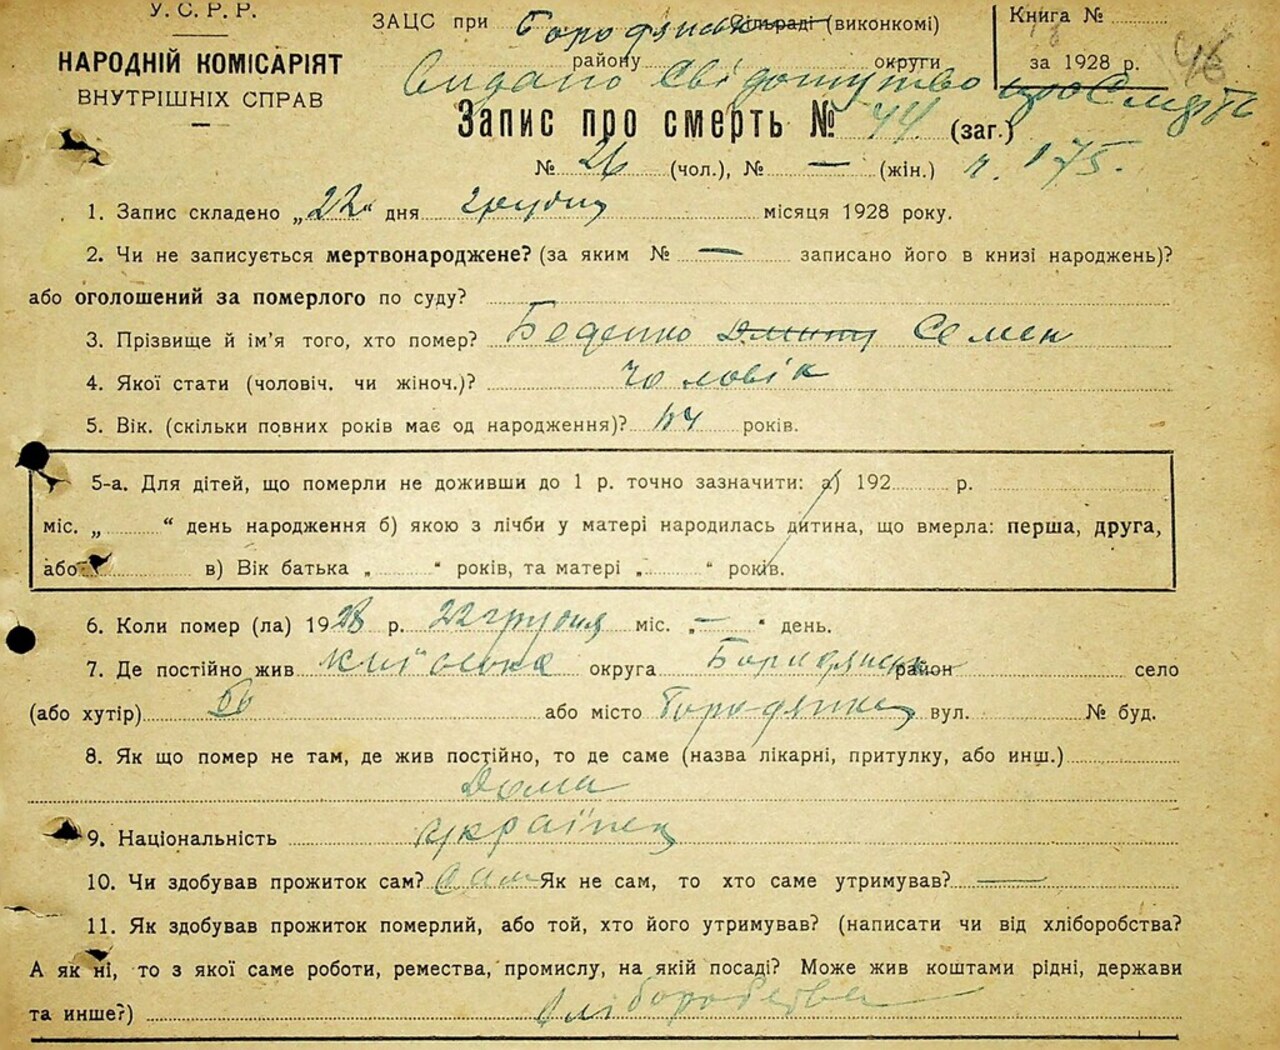 У. С. Р. Р.
НАРОДНІЙ КОМІСАРІЯТ
ВНУТРІШНІХ СПРАВ
ЗАЦС при Бородянськ сільраді (виконкомі)
району округи
Видано Свідоцтво про Смерть
Книга №
за 1928 р. 46
Запис про смерть № 44 (заг.)
№ 26 (чол.), № — (жін.) ч. 175.
1. Запис складено „22“ дня грудня місяця 1928 року.
2. Чи не записується мертвонароджене? (за яким № — записано його в книзі народжень)?
або оголошений за померлого по суду?
3. Прізвище й ім'я того, хто помер? Беденко Дмитр Семен
4. Якої стати (чоловіч. чи жіноч.)? чоловік
5. Вік. (скільки повних років має од народження)? років.
5-а. Для дітей, що померли не доживши до 1 р. точно зазначити: а) 192 р.
міс. „ “ день народження б) якою з лічби у матері народилась дитина, що вмерла: перша, друга,
або в) Вік батька „ “ років, та матері „ “ років.
6. Коли помер (ла) 1928 р. 22 грудня міс. „—“ день.
7. Де постійно жив Київська округа Бородянськ район село
(або хутір) або місто Бородянка вул. № буд.
8. Як що помер не там, де жив постійно, то де саме (назва лікарні, притулку, або инш.)
Дома
9. Національність українец
10. Чи здобував прожиток сам? Сам Як не сам, то хто саме утримував? —
11. Як здобував прожиток померлий, або той, хто його утримував? (написати чи від хліборобства?
А як ні, то з якої саме роботи, ремества, промислу, на якій посаді? Може жив коштами рідні, держави
та инше?) Хліборобства